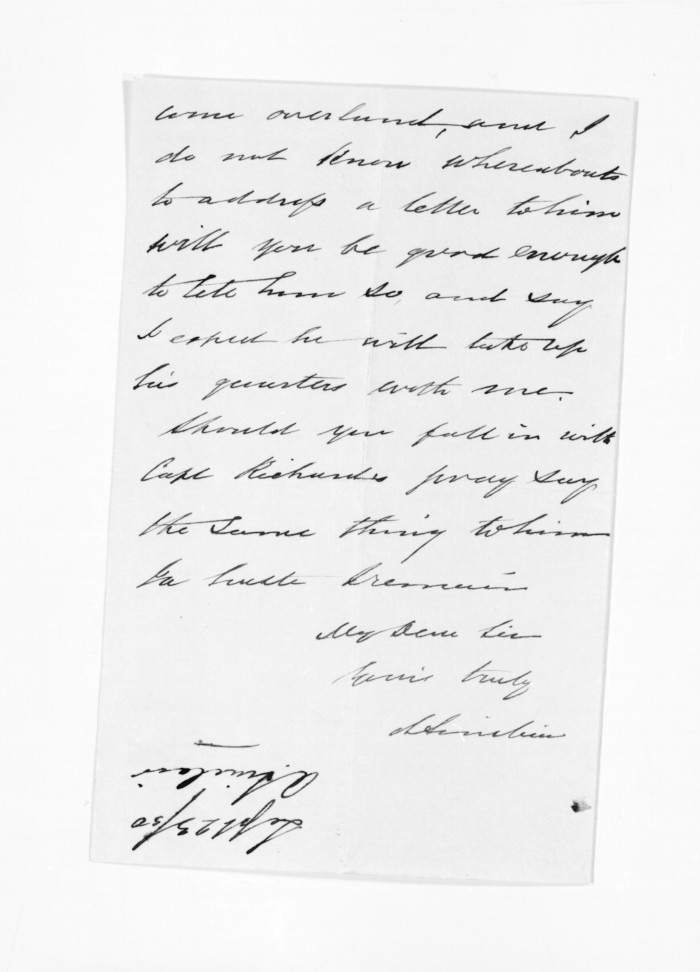 come overland, and I
do not know whereabouts
to address a letter to him
will you be good enough
to tell him so, and say
I expect he will take up
his quarters with me.
Should you fall in with
Capt Richards pray say
the same thing to him
In haste I remain
My Dear Sir
Yours truly
A Sinclair
A Sinclair
Sept 23/50